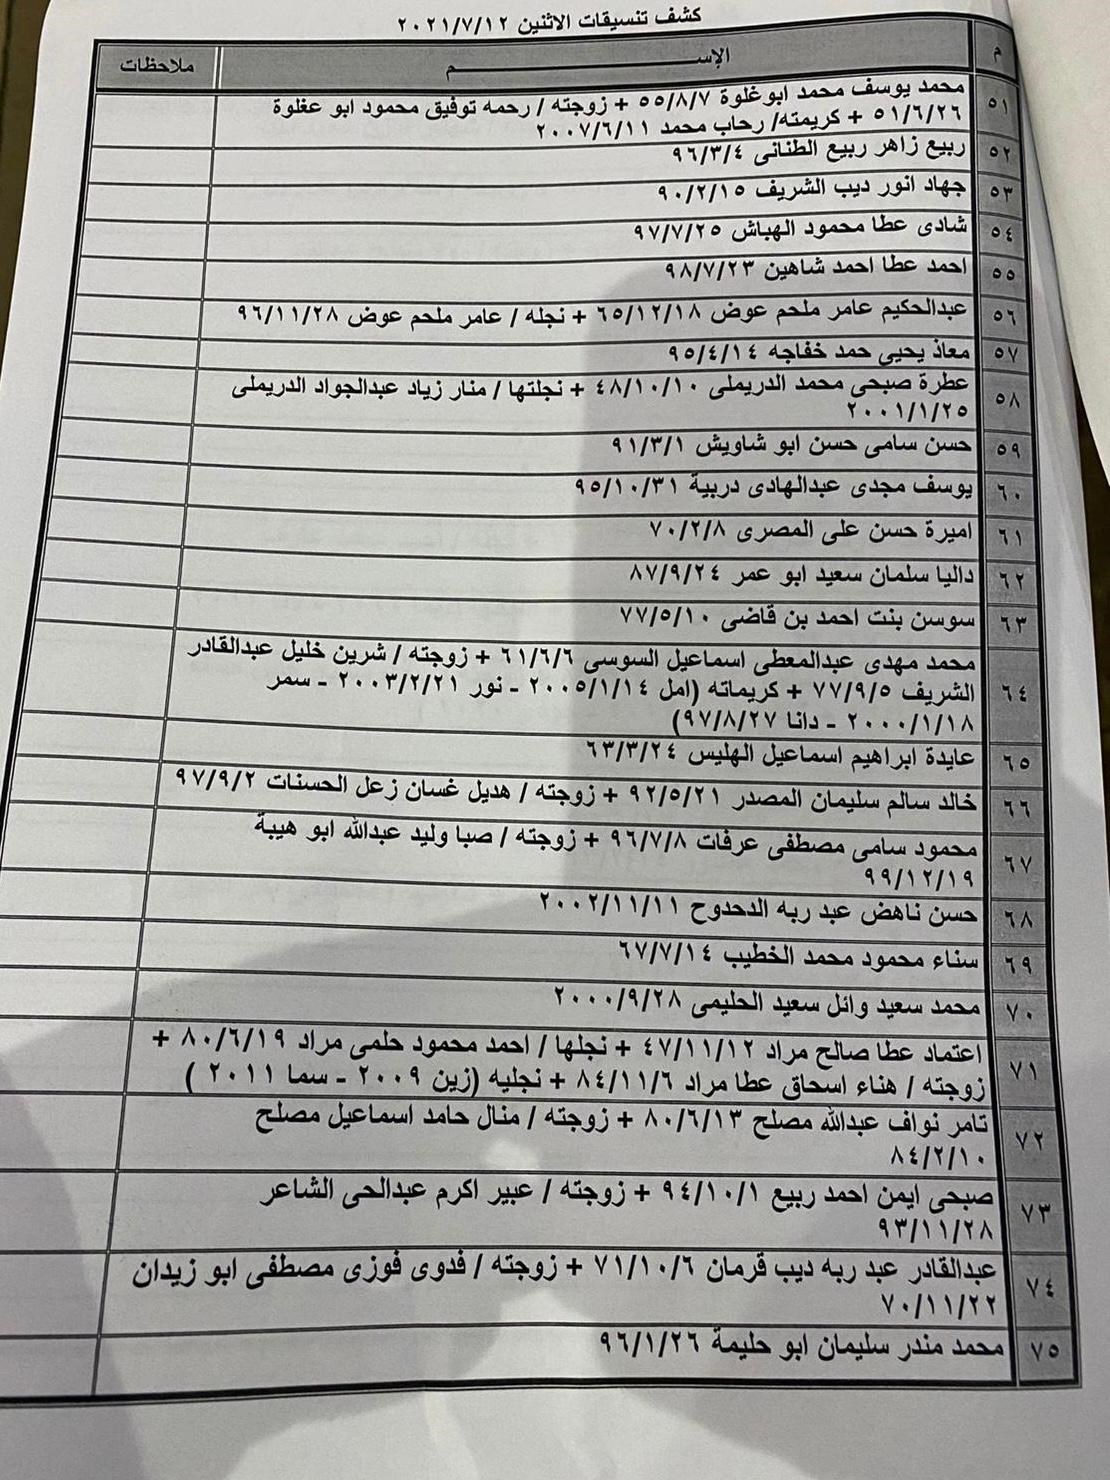 كشف تنسيقات الاثنين ٢٠٢١/٧/١٢
م الإســــــــم ملاحظات
٥١ محمد يوسف محمد ابوغلوة ٥٥/٨/٧ + زوجته / رحمه توفيق محمود ابو عغلوة
٥١/٦/٢٦ + كريمته/ رحاب محمد ٢٠٠٧/٦/١١
٥٢ ربيع زاهر ربيع الطنانى ٩٦/٣/٤
٥٣ جهاد انور ديب الشريف ٩٠/٢/١٥
٥٤ شادى عطا محمود الهباش ٩٧/٧/٢٥
٥٥ احمد عطا احمد شاهين ٩٨/٧/٢٣
٥٦ عبدالحكيم عامر ملحم عوض ٦٥/١٢/١٨ + نجله / عامر ملحم عوض ٩٦/١١/٢٨
٥٧ معاذ يحيى حمد خفاجه ٩٥/٤/١٤
٥٨ عطرة صبحى محمد الدريملى ٤٨/١٠/١٠ + نجلتها / منار زياد عبدالجواد الدريملى
٢٠٠١/١/٢٥
٥٩ حسن سامى حسن ابو شاويش ٩١/٣/١
٦٠ يوسف مجدى عبدالهادى دربية ٩٥/١٠/٣١
٦١ اميرة حسن على المصرى ٧٠/٢/٨
٦٢ داليا سلمان سعيد ابو عمر ٨٧/٩/٢٤
٦٣ سوسن بنت احمد بن قاضى ٧٧/٥/١٠
٦٤ محمد مهدى عبدالمعطى اسماعيل السوسى ٦١/٦/٦ + زوجته / شرين خليل عبدالقادر
الشريف ٧٧/٩/٥ + كريماته (امل ٢٠٠٥/١/١٤ - نور ٢٠٠٣/٢/٢١ - سمر
٢٠٠٠/١/١٨ - دانا ٩٧/٨/٢٧)
٦٥ عايدة ابراهيم اسماعيل الهليس ٦٣/٣/٢٤
٦٦ خالد سالم سليمان المصدر ٩٢/٥/٢١ + زوجته / هديل غسان زعل الحسنات ٩٧/٩/٢
٦٧ محمود سامى مصطفى عرفات ٩٦/٧/٨ + زوجته / صبا وليد عبدالله ابو هيبة
٩٩/١٢/١٩
٦٨ حسن ناهض عبد ربه الدحدوح ٢٠٠٢/١١/١١
٦٩ سناء محمود محمد الخطيب ٦٧/٧/١٤
٧٠ محمد سعيد وائل سعيد الحليمى ٢٠٠٠/٩/٢٨
٧١ اعتماد عطا صالح مراد ٤٧/١١/١٢ + نجلها / احمد محمود حلمى مراد ٨٠/٦/١٩ +
زوجته / هناء اسحاق عطا مراد ٨٤/١١/٦ + نجليه (زين ٢٠٠٩ - سما ٢٠١١ )
٧٢ تامر نواف عبدالله مصلح ٨٠/٦/١٣ + زوجته / منال حامد اسماعيل مصلح
٨٤/٢/١٠
٧٣ صبحى ايمن احمد ربيع ٩٤/١٠/١ + زوجته / عبير اكرم عبدالحى الشاعر
٩٣/١١/٢٨
٧٤ عبدالقادر عبد ربه ديب قرمان ٧١/١٠/٦ + زوجته / فدوى فوزى مصطفى ابو زيدان
٧٠/١١/٢٢
٧٥ محمد منذر سليمان ابو حليمة ٩٦/١/٢٦